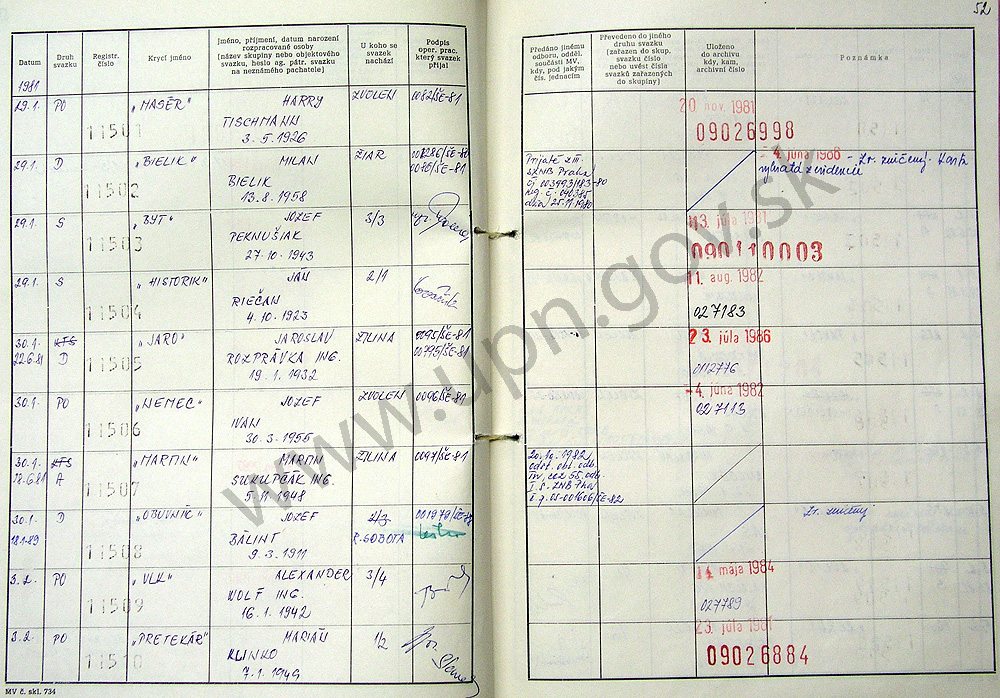 52
Datum
Druh svazku
Registr. číslo
Krycí jméno
Jméno, příjmení, datum narození rozpracované osoby (název skupiny nebo objektového svazku, heslo ag. pátr. svazku na neznámého pachatele)
U koho se svazek nachází
Podpis oper. prac. který svazek přijal
Předáno jinému odboru, odděl. součásti MV, kdy, pod jakým čís. jednacím
Převedeno do jiného druhu svazku (zařazen do skup. svazku číslo nebo uvést čísla svazků zařazených do skupiny)
Uloženo do archivu kdy, kam, archivní číslo
Poznámka
1981
29.1. PO 11501 „MASÉR" HARRY ZVOLEN 0082/ŠE-81
TISCHMANN
3.5.1926
20 nov. 1981
09026998
29.1. D 11502 „BIELIK" MILAN ŽIAR
BIELIK
13.8.1958
Prijaté z
SZNB Praha
-4. júna 1986 - Zv. zničený.
29.1. S 11503 „BYT" JOZEF 3/3
PEKNUŠIAK
27.10.1943
13. júla 1981
090110003
29.1. S 11504 „HISTORIK" JÁN 2/1
RIEČAN
4.10.1923
11. aug. 1982
027183
30.1. KTS 11505 „JARO" JAROSLAV ŽILINA 0095/ŠE-81
22.6.81 D ROZPRÁVKA ING. 0095/ŠE-81
19.1.1932
23. júla 1986
0112776
30.1. PO 11506 „NEMEC" JOZEF ZVOLEN 0096/ŠE-81
IVAN
30.3.1955
-4. júna 1982
027113
30.1. KTS 11507 „MARTIN" MARTIN ŽILINA 0097/ŠE-81
A SUKUPČÁK ING.
5.11.1948
20.10.1982
30.1. D 11508 „OBUVNÍK" JOZEF 2/3
18.1.89 BÁLINT R. SOBOTA
9.3.1911
Zv. zničený
3.2. PO 11509 „VLK" ALEXANDER 3/4
WOLF ING.
16.1.1942
14 mája 1984
027789
3.2. PO 11510 „PRETEKÁR" MARIÁN 1/2
KLINKO
7.1.1949
23. júla 1981
09026884
MV č. skl. 734
www.upn.gov.sk